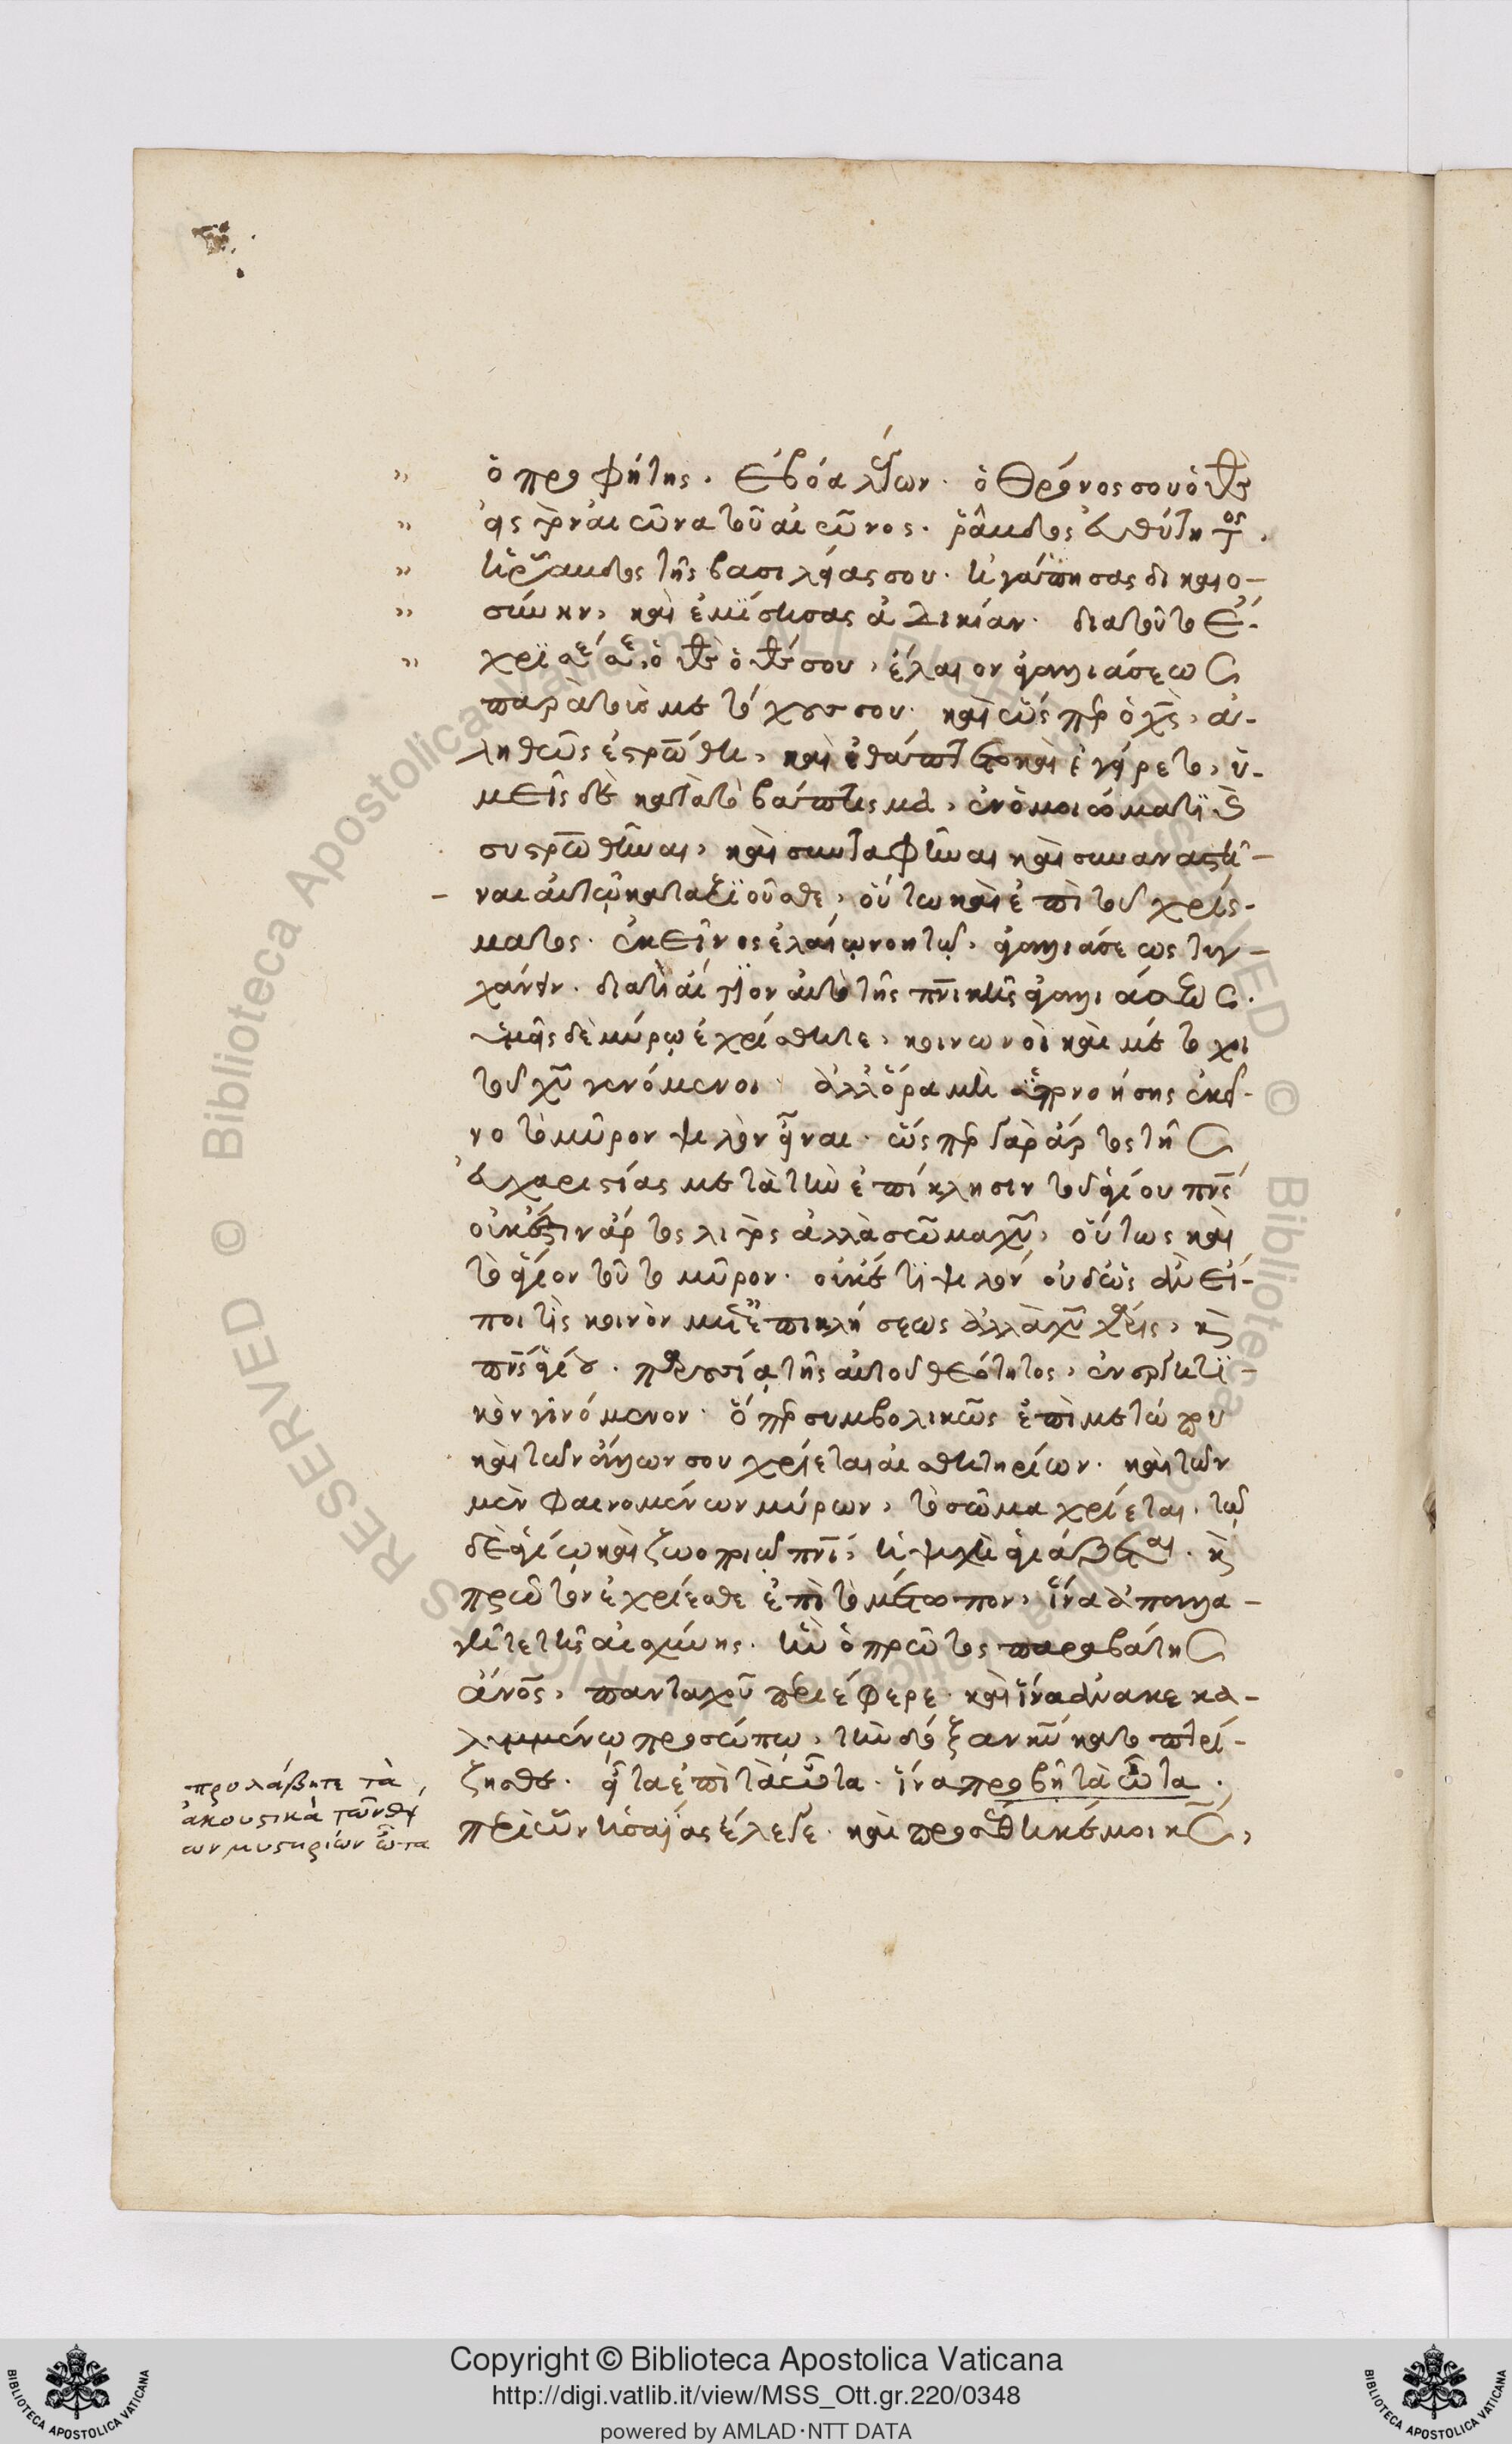 ὁ προφήτης. ἐβόα λέγων. ὁ θρόνος σου ὁ θς
εἰς τὸν αἰῶνα τοῦ αἰῶνος. ῥάβδος εὐθύτητος.
ἡ ῥάβδος τῆς βασιλείας σου. ἠγάπησας δικαιο-
σύνην, καὶ ἐμίσησας ἀδικίαν. διατοῦτο ἔ-
χρισέ σε, ὁ θς ὁ θς σου, ἔλαιον ἀγαλλιάσεως
παρὰ τοὺς μετόχους σου. καὶ ὥσπερ ὁ χς, ἀ-
ληθῶς ἐστρώθη, καὶ ἐθάπτετο καὶ ἐγείρετο, ὑ-
μεῖς δὲ κατὰ τὸ βάπτισμα, ἐν ὁμοιώματι
συστρωθῆναι, καὶ συνταφῆναι καὶ συναναστῆ-
ναι αὐτῷ καταξιοῦσθε, οὕτω καὶ ἐπὶ τοῦ χρίσ-
ματος. ἐκεῖνος ἐλαίῳ νοητῷ. ἀγαλλιάσεως τυγ-
χάνειν. διατὶ αἴτιον αὐτὸ τῆς πνικῆς ἀγαλλιάσεως.
ὑμεῖς δὲ μύρῳ ἐχρίσθητε, κοινωνοὶ καὶ μέτοχοι
τοῦ χυ γενόμενοι. ἀλλ' ὅρα μὴ ὑπονοήσης ἐκεῖ-
νο τὸ μῦρον ψιλὸν εἶναι. ὥσπερ γὰρ ἄρτος τῆς
εὐχαριστίας μετὰ τὴν ἐπίκλησιν τοῦ ἁγίου πνς
οὐκέτιν ἄρτος λιτὸς ἀλλὰ σῶμα χυ, οὕτως καὶ
τὸ ἅγιον τοῦτο μῦρον. οὐκέτι ψιλὸν οὐδ' ὡς ἀν εἴ-
ποι τὶς κοινὸν μετ' ἐπικλήσεως ἀλλὰ χυ χάρις, κ
πνς ἁγίου. παρουσίᾳ τῆς αὐτοῦ θεότητος, ἐνεργητι-
κὸν γινόμενον. ὅπερ συμβολικῶς ἐπὶ μετώπου
καὶ τῶν ἄλλων σου χρίεται αἰσθητηρίων. καὶ τῶν
μὲν φαινομένων μύρων, τὸ σῶμα χρίεται. τῷ
δὲ ἁγίῳ καὶ ζωοποιῷ πνι, ἡ ψυχὴ ἁγιάζεται. κ
πρῶτον ἐχρίεσθε ἐπὶ τὸ μέτωπον, ἵνα ἀπαλλα-
γῆτε τῆς αἰσχύνης. ἣν ὁ πρῶτος παραβάτης
ἄνος, πανταχοῦ περιέφερε. καὶ ἵνα ἀνακεκα-
λυμμένῳ προσώπῳ, τὴν δόξαν κυ κατοπτρί-
ζησθε. εἶτα ἐπὶ τὰ ὦτα. ἵνα προβῆ τὰ ὦτα.
περὶ ὧν ἡσαΐας ἔλεγε. καὶ προσέθηκέ μοι κς,
προλάβητε τὰ
ἀκουστικὰ τῶν θεί
ων μυστηρίων ὦτα
Copyright © Biblioteca Apostolica Vaticana
http://digi.vatlib.it/view/MSS_Ott.gr.220/0348
powered by AMLAD·NTT DATA